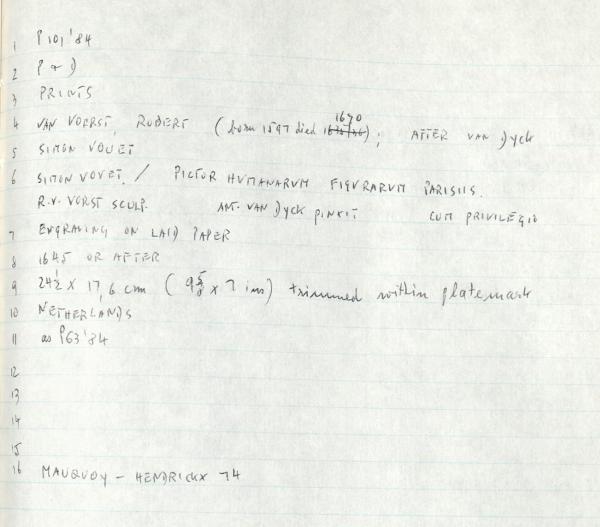 1 P101'84
2 P & D
3 PRINTS
4 VAN VOERST, ROBERT (born 1597 died 1670); AFTER VAN DYCK
5 SIMON VOUET
6 SIMON VOVET. / PICTOR HUMANARVM FIGVRARVM PARISIIS.
R.V. VORST SCULP. ANT. VAN DYCK PINXIT CUM PRIVILEGIO
7 ENGRAVING ON LAID PAPER
8 1645 OR AFTER
9 24½ X 17,6 cm (9⅝ x 7 ins) trimmed within platemark
10 NETHERLANDS
11 as P63'84
12
13
14
15
16 MAUQUOY - HENDRICKX 74